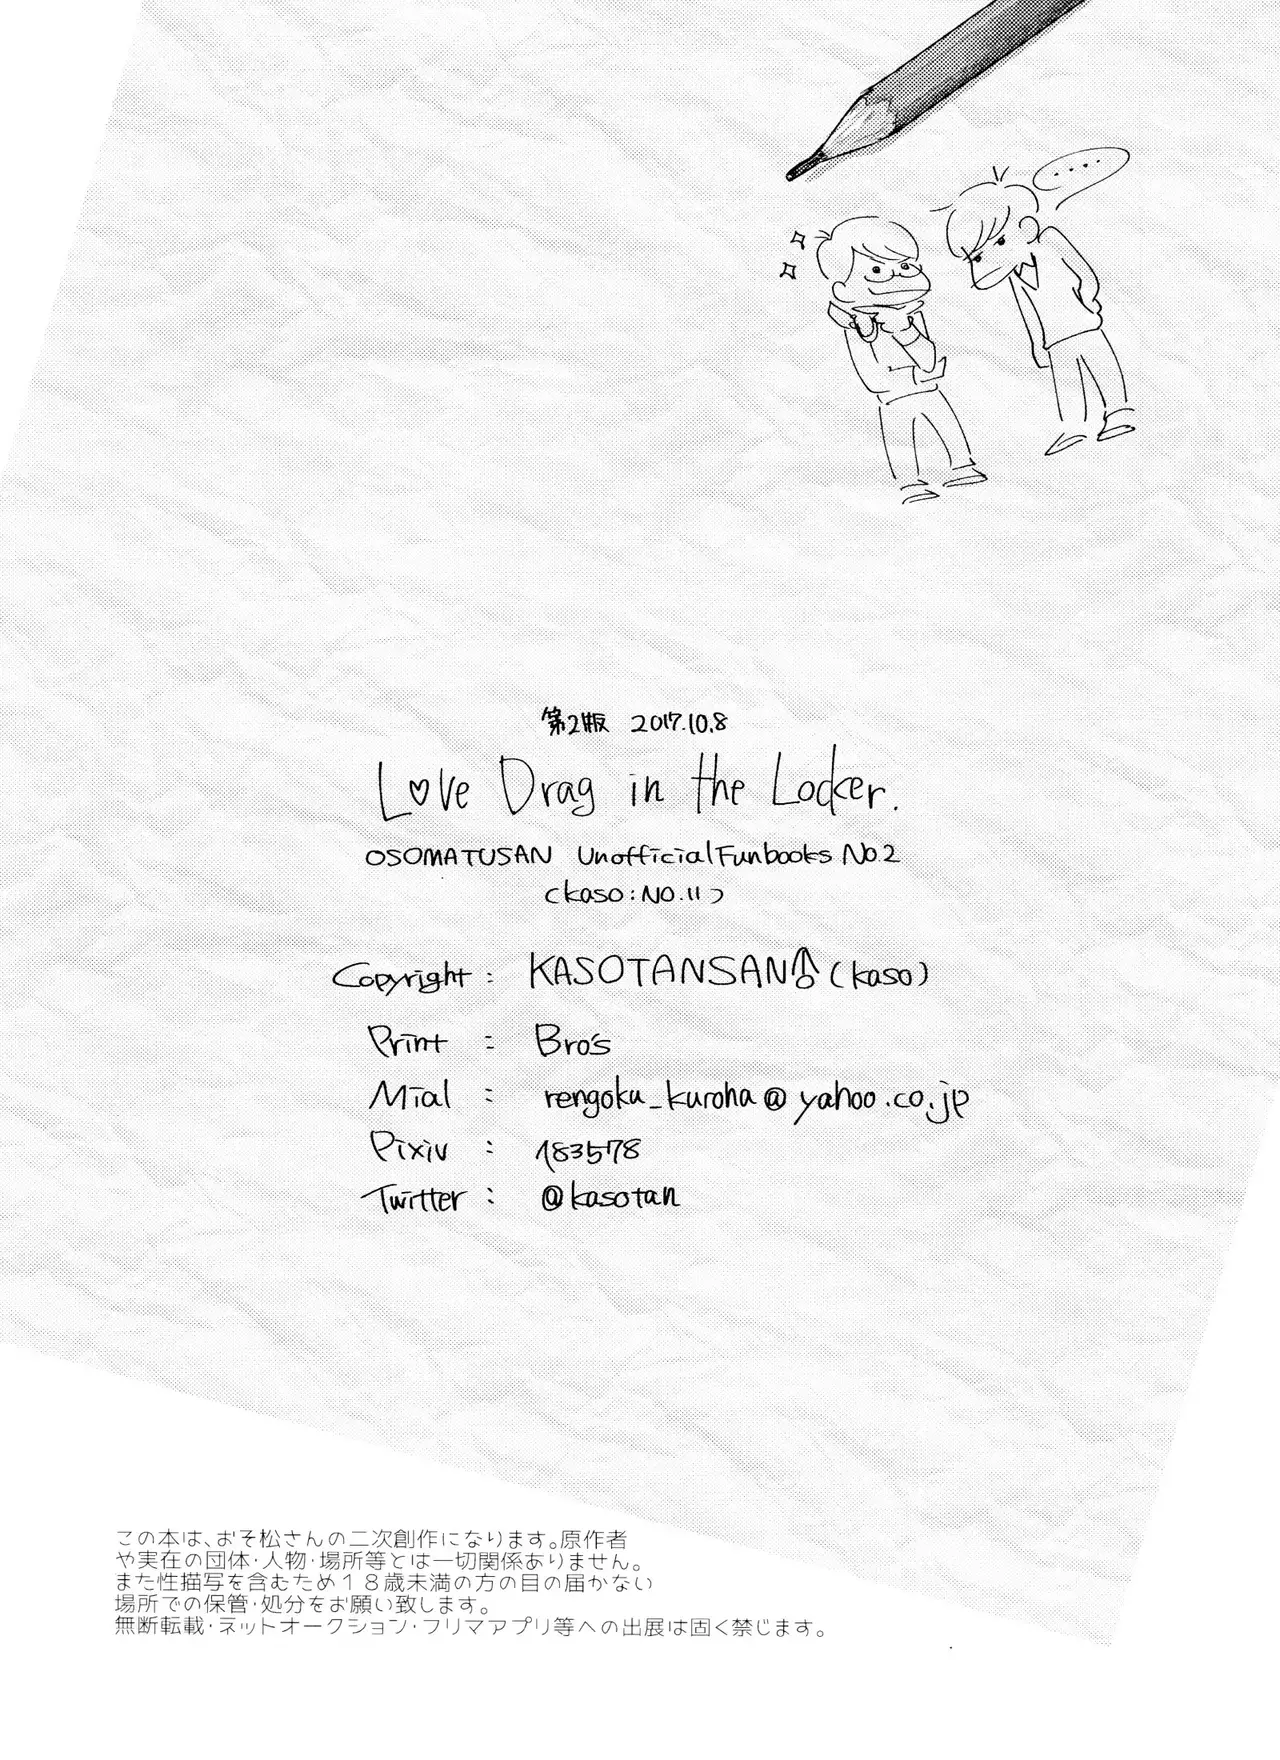 ....
第2版 2017.10.8
L♡ve Drag in the Locker.
OSOMATUSAN UnofficialFunbooks No.2
(kaso:NO.11)
Copyright : KASOTANSAN♂(kaso)
Print : Bro's
Mial : rengoku_kuroha@yahoo.co.jp
Pixiv : 183578
Twitter : @kasotan
この本は、おそ松さんの二次創作になります。原作者
や実在の団体・人物・場所等とは一切関係ありません。
また性描写を含むため18歳未満の方の目の届かない
場所での保管・処分をお願い致します。
無断転載・ネットオークション・フリマアプリ等への出展は固く禁じます。